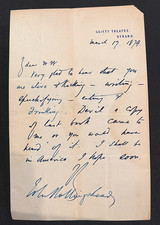 GAIETY THEATRE
STRAND
March 17 1879
Dear W W
Very glad to hear that you
are alive & thinking – writing –
speechifying – eating &
drinking. Devil a copy
of last book came to
me or you would have
heard of it. I shall be
in America I hope soon
John Hollingshead